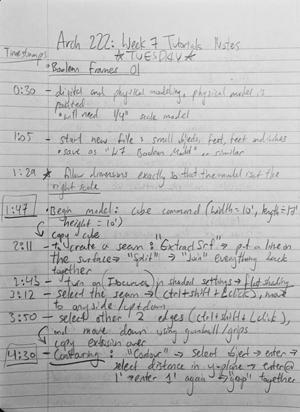 Arch 222: Week 7 Tutorials Notes
★TUESDAY★
Timestamps
• Boolean Frames 01
0:30 - digital and physical modeling, physical model is
painted
* will need 1/4" scale model
1:05 - start new file: small objects, feet, feet and inches
- save as "W7 Boolean Model" or similar
1:29 ★ follow dimensions exactly so that the model is at the
right scale
1:47 • Begin model: Cube command (width = 10', length =
height = 10')
copy cube
2:11 - to create a seam: "ExtractSrf" → put a line on
the surface → "Split" → "Join" everything back
together
2:43 - turn on Isocurves in shaded settings → flat shading
3:12 - select the seam → (ctrl+shift+click), move
to any side / up+down
3:50 - select other 2 edges (ctrl+shift+click),
and move down using gumball/grips
copy extrusion over
4:30 - Contouring: "Contour" → select object → enter →
select distance in y-plane → enter
1' → enter 1' again → "group" together